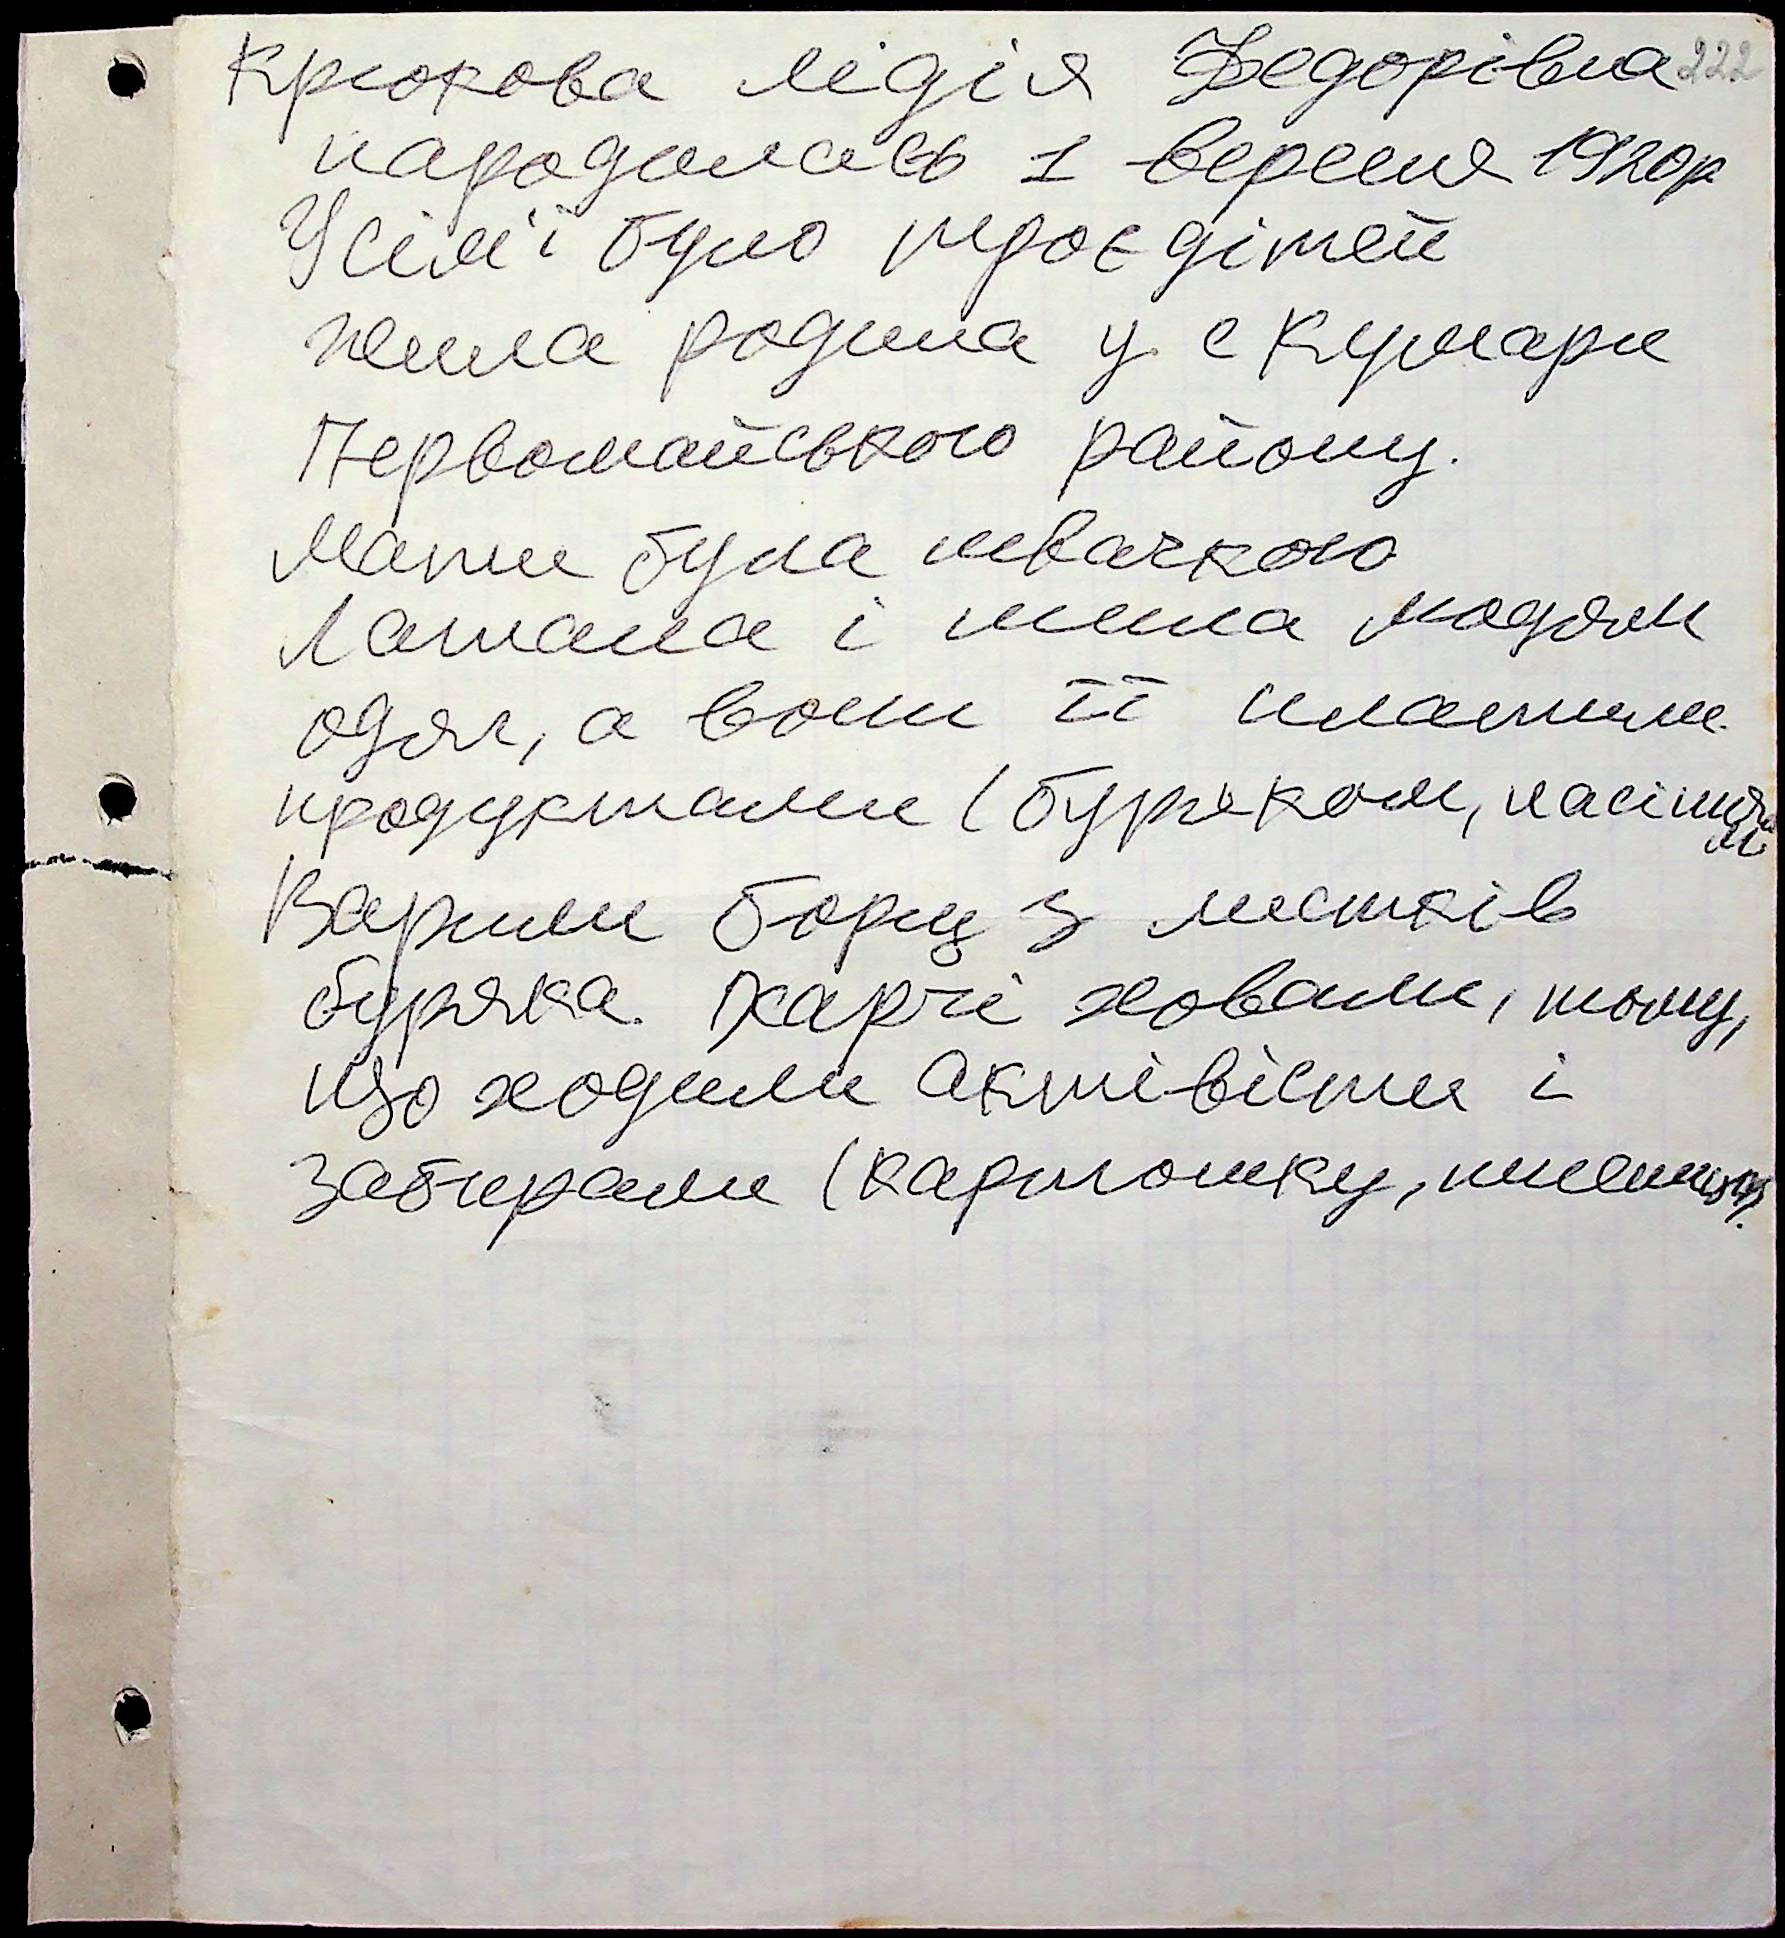 Крюкова Лідія Федорівна 222
народилась 1 вересня 1920р
У сім'ї було троє дітей
жила родина у с Кумари
Первомайського району.
Мати була швачкою
Латала і шила людям
одяг, а вони її платили
продуктами (буряком, насінням
Варили борщ з листків
буряка. Харчі ховали, тому,
що ходили активісти і
забирали (картошку, пшеницю).